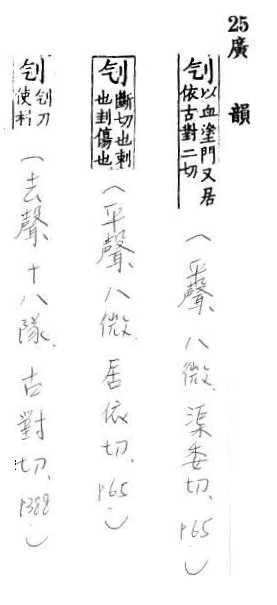 25廣韻
刏以血塗門又居依古對二切（平聲、八微、渠委切、P65）
刏斷切也刺也刲傷也（平聲、八微、居依切、P65）
刏刏刀使利（去聲、十八隊、古對切、P388）